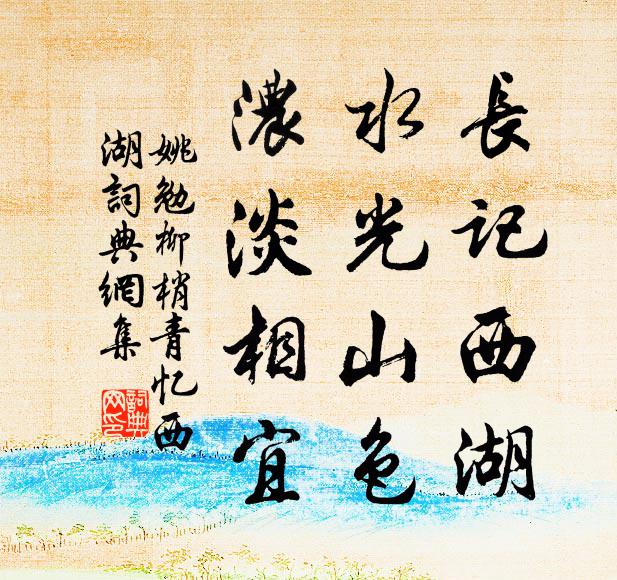 長記西湖
水光山色
濃淡相宜
姚勉柳梢青忆西
湖詞典網集
詞典網印